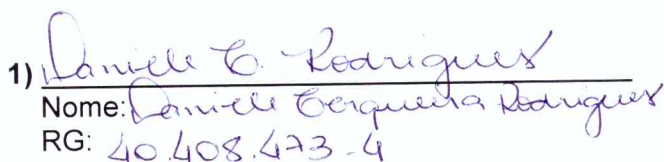 1) Daniele C. Rodrigues
Nome: Daniele Cerqueira Rodrigues
RG: 40.408.473-4